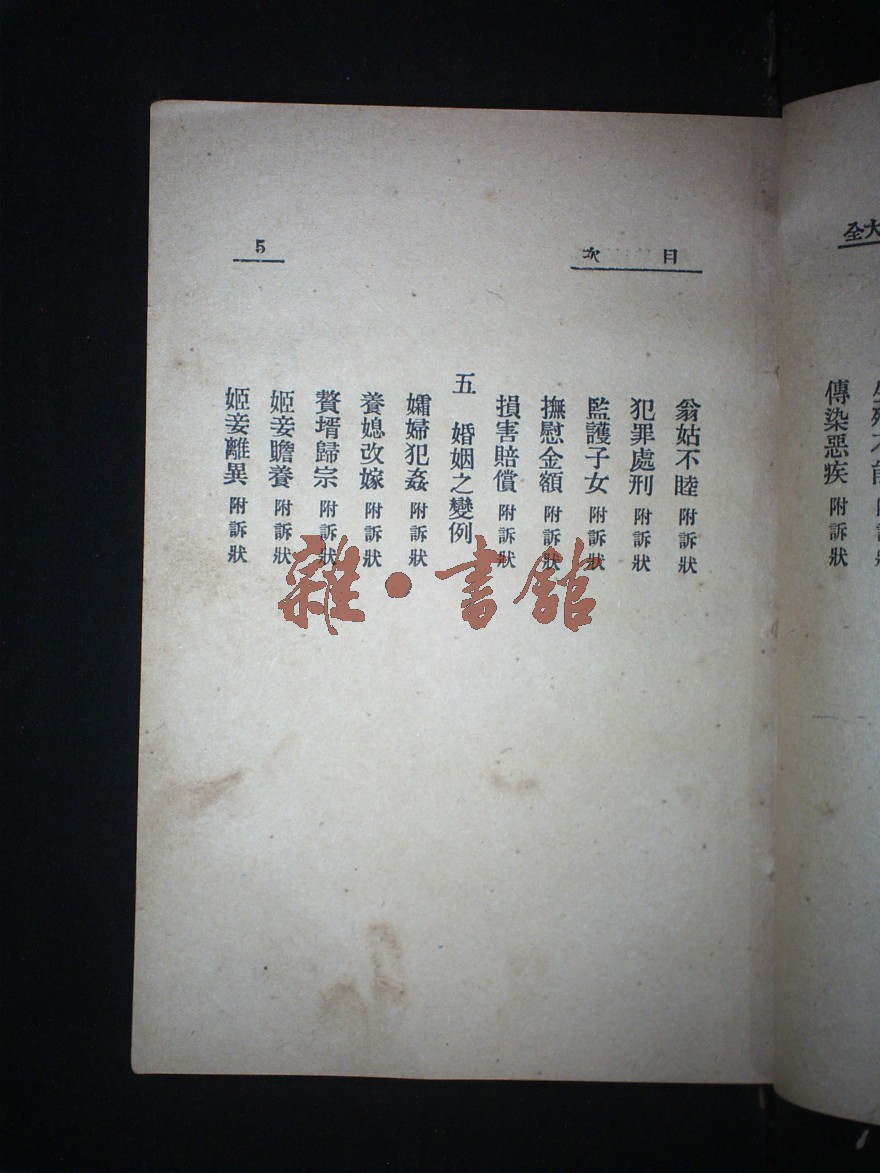 全大
傳染惡疾 附訴狀
目次
5
翁姑不睦 附訴狀
犯罪處刑 附訴狀
監護子女 附訴狀
撫慰金額 附訴狀
損害賠償 附訴狀
五 婚姻之變例
孀婦犯姦 附訴狀
養媳改嫁 附訴狀
贅壻歸宗 附訴狀
姬妾贍養 附訴狀
姬妾離異 附訴狀
雜·書館